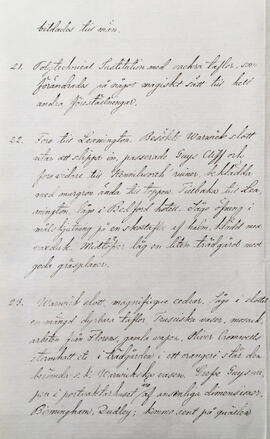 bildades till män.
21. Polytechnical Institution med vackra taflor, som
förändrades på något magiskt sätt till helt
andra föreställningar.
22. Foro till Leamington. Besökte Warwick slott
utan att slippa in, passerade Guys Cliff och
foro vidare till Kennilworth ruiner, beklädda
med murgrön ända till toppen. Tillbaka till Lea-
mington, lågo i Bedford hotell. Sågo öfning i
målskjutning på en skottafla af halm, klädd med
vaxduk. Midtöfver låg en liten trädgård med
goda gräsplaner.
23. Warwick slott, magnifique cedrar. Sågo i slottet
en mängd dyrbara taflor, Etruriska vaser, mosaik
arbeten från Florens, gamla vapen, Oliver Cromwells
stormhatt etc. I trädgården i ett orangeri står den
berömda s. k. Warwickska vasen. Grefve Guys va-
pen i portvaktarhuset, af underliga dimensioner.
Birmingham, Dudley; kommo sent på qvällen